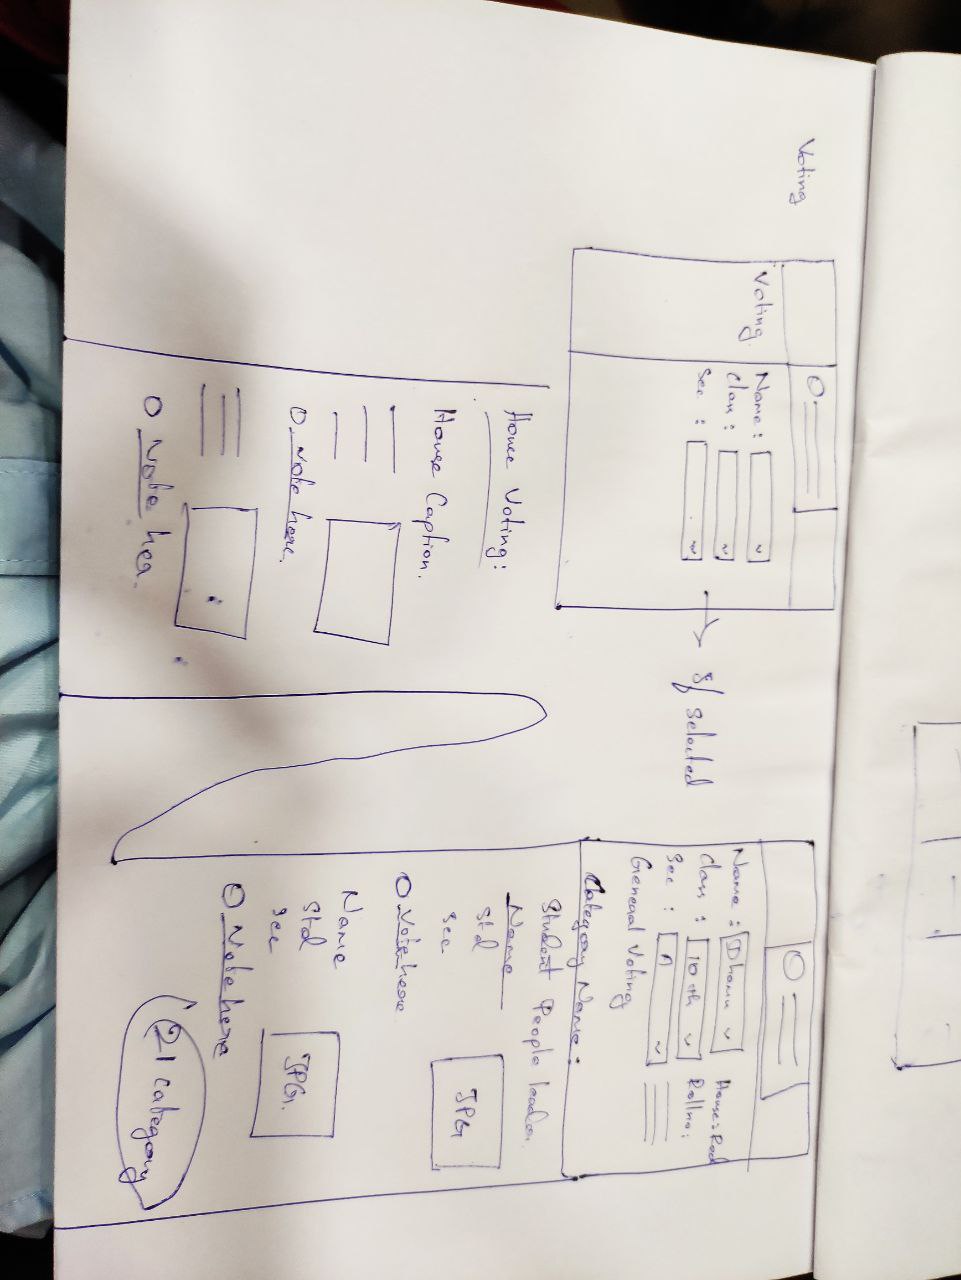 Voting
Voting
Name :
Class :
Sec :
If selected
Name : Dhanu
Class : 10th
Sec : A
House: Red
Rollno:
General Voting
Category Name :
Student People leader
Name
Std
Sec
Vote here
JPG
Name
Std
Sec
Vote here
JPG.
21 category
House Voting:
House Caption.
Vote here.
Vote her.